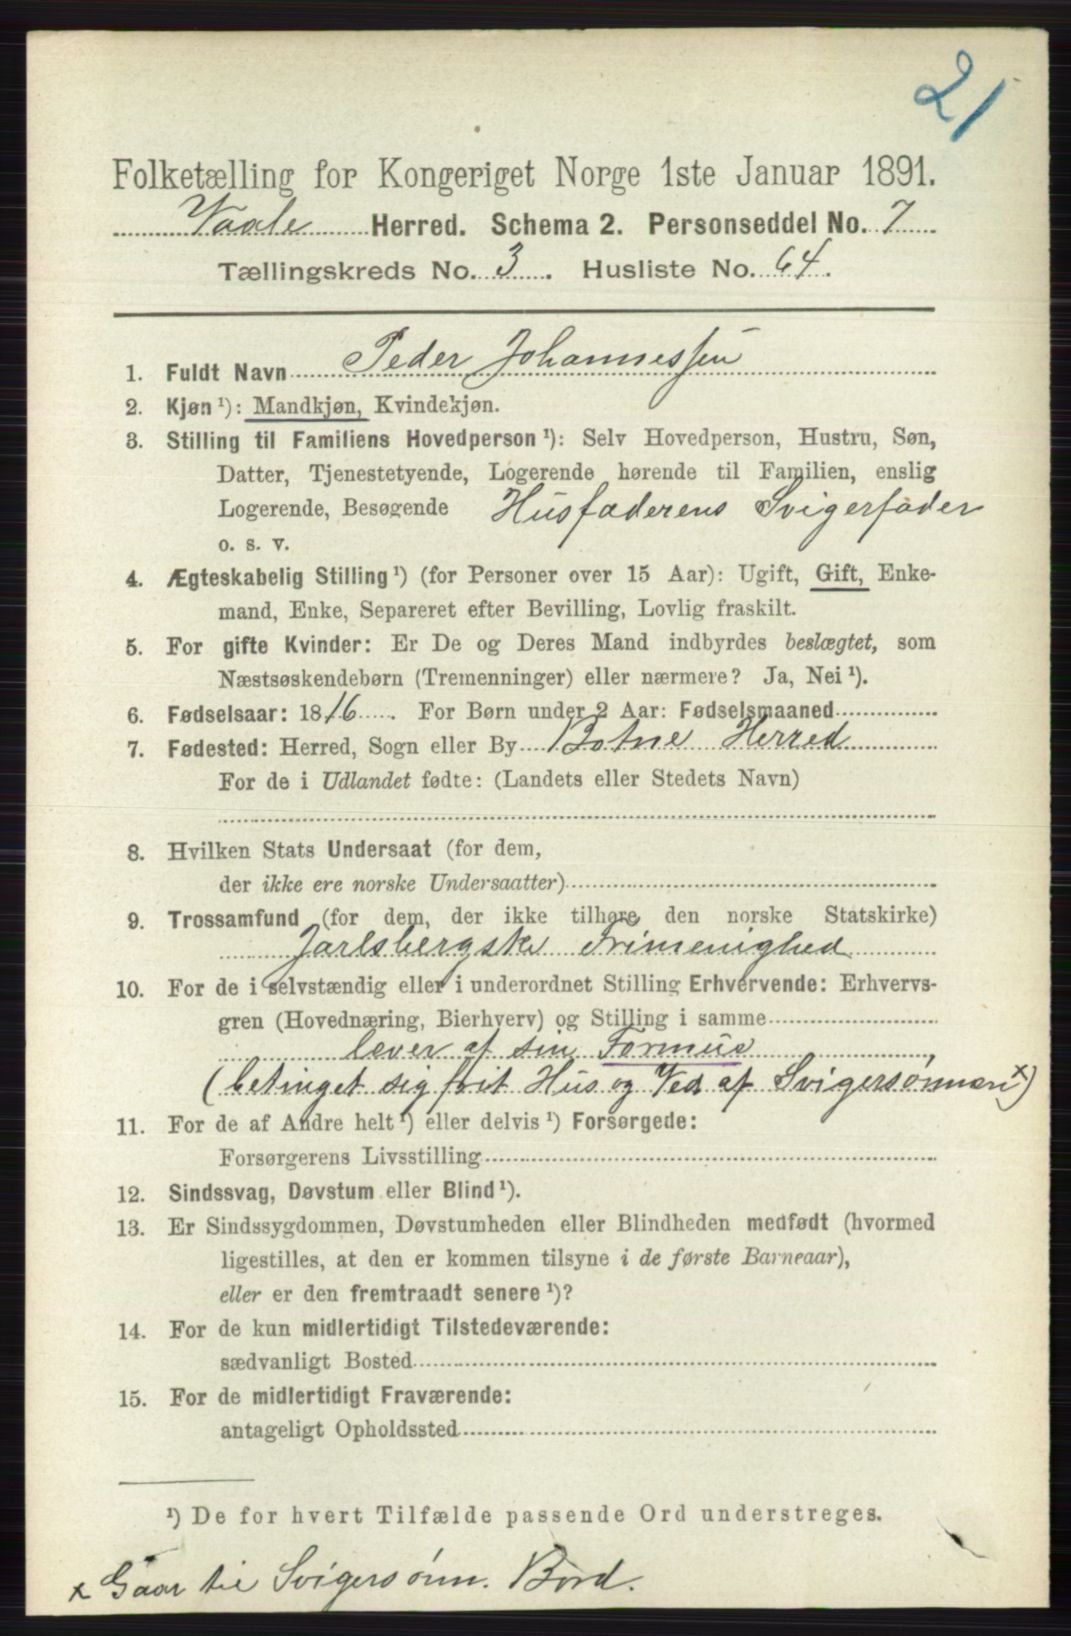 21
Folketælling for Kongeriget Norge 1ste Januar 1891.
Vaale Herred. Schema 2. Personseddel No. 7
Tællingskreds No. 3. Husliste No. 64.
1. Fuldt Navn Peder Johannessen
2. Kjøn ¹): Mandkjøn, Kvindekjøn.
3. Stilling til Familiens Hovedperson ¹): Selv Hovedperson, Hustru, Søn,
Datter, Tjenestetyende, Logerende hørende til Familien, enslig
Logerende, Besøgende Husfaderens Svigerfader
o. s. v.
4. Ægteskabelig Stilling ¹) (for Personer over 15 Aar): Ugift, Gift, Enke-
mand, Enke, Separeret efter Bevilling, Lovlig fraskilt.
5. For gifte Kvinder: Er De og Deres Mand indbyrdes beslægtet, som
Næstsøskendebørn (Tremenninger) eller nærmere? Ja, Nei ¹).
6. Fødselsaar: 1816. For Børn under 2 Aar: Fødselsmaaned
7. Fødested: Herred, Sogn eller By Botne Herred
For de i Udlandet fødte: (Landets eller Stedets Navn)
8. Hvilken Stats Undersaat (for dem,
der ikke ere norske Undersaatter)
9. Trossamfund (for dem, der ikke tilhøre den norske Statskirke)
Jarlsbergske Frimenighed
10. For de i selvstændig eller i underordnet Stilling Erhvervende: Erhvervs-
gren (Hovednæring, Bierhverv) og Stilling i samme
lever af sin Formue
(betinget sig frit Hus og Ved af Svigersønnen x)
11. For de af Andre helt ¹) eller delvis ¹) Forsørgede:
Forsørgerens Livsstilling
12. Sindssvag, Døvstum eller Blind ¹).
13. Er Sindssygdommen, Døvstumheden eller Blindheden medfødt (hvormed
ligestilles, at den er kommen tilsyne i de første Barneaar),
eller er den fremtraadt senere ¹)?
14. For de kun midlertidigt Tilstedeværende:
sædvanligt Bosted
15. For de midlertidigt Fraværende:
antageligt Opholdssted
¹) De for hvert Tilfælde passende Ord understreges.
x Gaar til Svigersønn. Bord.